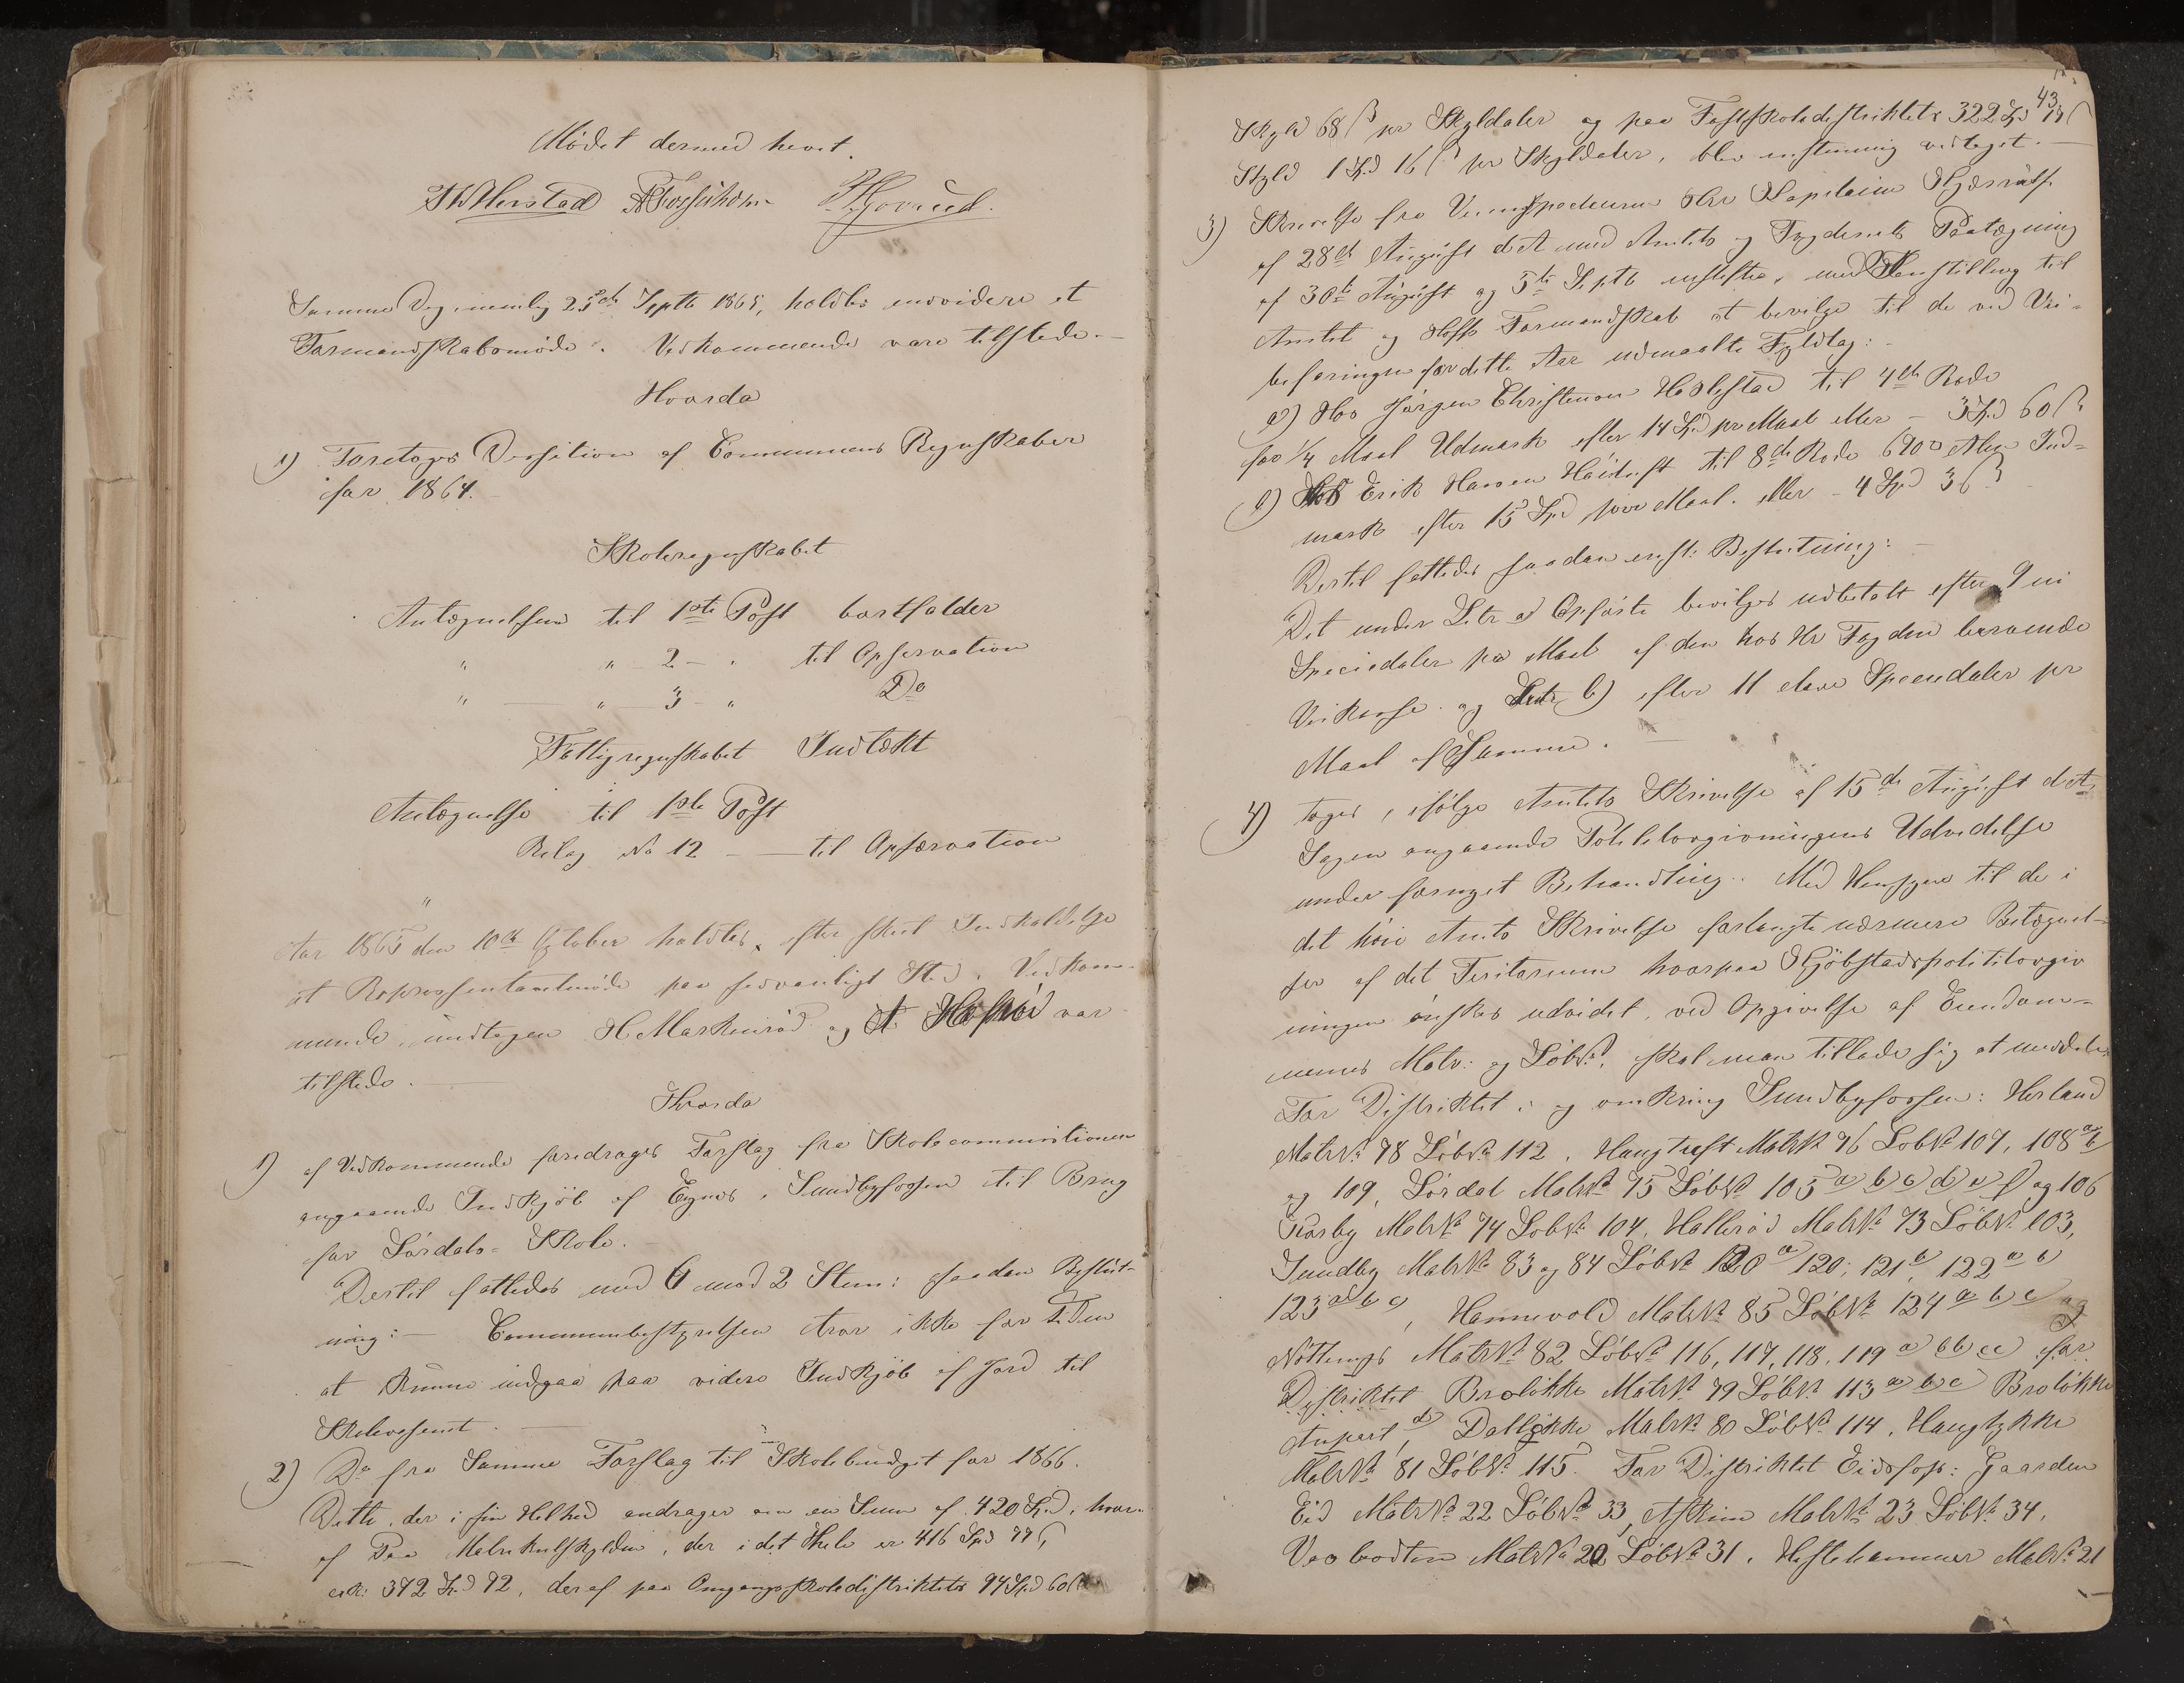 Mødet dermed hevet.
Samme Dag, nemlig 25de Septb 1865, holdtes endvidere et
Formandskabsmøde. Vedkommende vare tilstede.
Hvorda
1) Foretoges Decision af Communens Regnskaber
for 1864.
Skoleregnskabet
Antegnelsen til 1ste Post bortfalder
" " 2 - " til Observation
" " 3 - " Do
Fattigregnskabet Indtækt
Antegnelse til 1ste Post
Bilag No 12 — til Observation
"
Aar 1865 den 10de October holdtes, efter skeet Indkaldelse
et Representantmøde paa sedvanligt Sted. Vedkom-
mende, undtagen H Maskerød og A var
tilstede.
Hvorda
1) af Vedkommende foredroges Forslag fra Skolecommissionen
angaaende Indkjøb af i Sundbyfossen til Brug
for Sørdals-Skole.
Dertil fattedes med 6 mod 2 Stem: saadan Beslut-
ning:- Communebestyrelsen tror ikke for Tiden
at kunne indgaa paa videre Indkjøb af Jord til
Skolevesenet.
2) Do fra Samme Forslag til Skolebudget for 1866.
Dette, der i sin Helhed andrager en Sum af 420 Spd, hvor-
af Paa Matrikulskylden, der i det Hele er 416 Spd 77 ß,
372 Spd 92, deraf paa Omgangsskoledistriktets 94 Spd 60 ß
43
Skyld 68 ß pr Skyldaler og paa Fastskoledistriktets 322 Spd 17 ß
Skyld 1 Spd 16 ß pr Skyldaler, blev enstemmig vedtaget.
3) Skrivelse fra Veiinspecteuren Hr Kapitain
af 28de August d.A. med Amtets og Fogderiets Paategning
af 30te August og 5te Septb med Henstilling til
Amtet og Formandskab at bevilge til de ved Vei-
befaringen for dette Aar udmaalte Fyldtag:
a) Hos Jørgen Christensen Haslestad til 4de Rode
for 1/4 Maal Udmark efter 14 Spd pr Maal eller - 3 Spd 60 ß
b) Hos Erik Hansen til 8de Rode Alen Ind-
mark efter 15 Spd pr Maal. eller - 4 Spd 3 ß
Dertil fattedes saadan enst: Beslutning:
Det under Litr a) Opførte bevilges udbetalt efter 9 ni
Speciedaler pr Maal af den hos Hr Fogden beroende
Veikasse og Litr b) efter 11 eleve Speciedaler pr
Maal af Samme.
4) toges, ifølge Amtets Skrivelse af 15de August d.A.
Sagen angaaende Politilovgivningens Udvidelse
under fornyet Behandling. Med Hensyn til de i
det høie Amts Skrivelse forlangte nærmere Betegnel-
ser af det Teritorium hvorpaa Kjøbstadspolitilovgiv
ningen ønskes udvidet, ved Opgivelse af Eiendom-
menes Matr: og Løbe No, skal man tillade sig at meddele
For Distriktet i og omkring Sundbyfossen: Herland
Matr No 78 Løb No 112, Haugtuft Matr No 76 Løb No 107, 108 a b
og 109, Sørdal Matr No 75 Løb No 105 a b c d e f og 106
Matr No 74 Løb No 104, Hallerød Matr No 73 Løb No 103,
Sundby Matr No 83 og 84 Løb No 120 a 120; 121 b, 122 a b
123 a b c, Hannevold Matr No 85 Løb No 124 a b c og
Nøttungs Matr No 82 Løb No 116, 117, 118, 119 a b c for
Distriktet Broløkke Matr No 79 Løb No 113 a b c Broløkke
Anpart d, Dalløkke Matr No 80 Løb No 114, Haugløkke
Matr No 81 Løb No 115. For Distriktet Eidsfoss: Gaarden
Eid Matr No 22 Løb No 33, Askim Matr No 23 Løb No 34,
Matr No 20 Løb No 31, Hestehammer Matr No 21